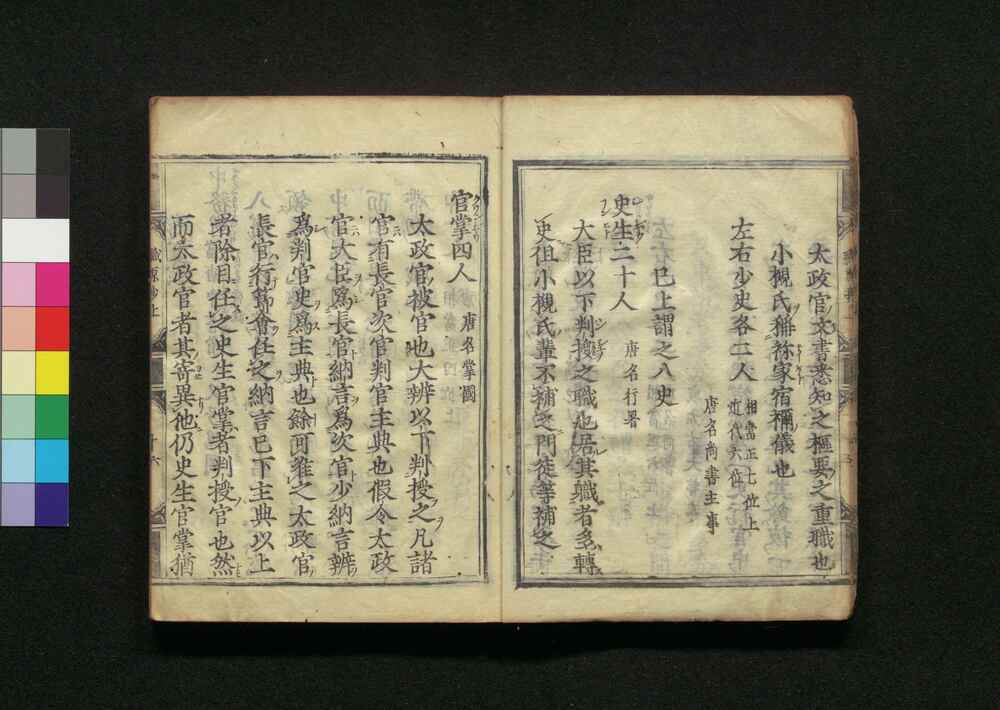 太政官文書悉知之樞要之重職也
小槻氏稱祢家宿禰儀也
左右少史各二人
相當正七位上
近代六位
唐名尚書主事
已上謂之八史
史生二十人
唐名行署
大臣以下判授之職也居其職者多轉
史但小槻氏輩不補之門徒等補之
官掌四人
唐名掌固
太政官被官也大辨以下判授之凡諸
官有長官次官判官主典也假令太政
官大臣爲長官納言爲次官少納言辨
爲判官史爲主典也餘可准之太政官
長官行節會任之納言已下主典以上
者除目任之史生官掌者判授官也然
而太政官者其寄異他仍史生官掌猶